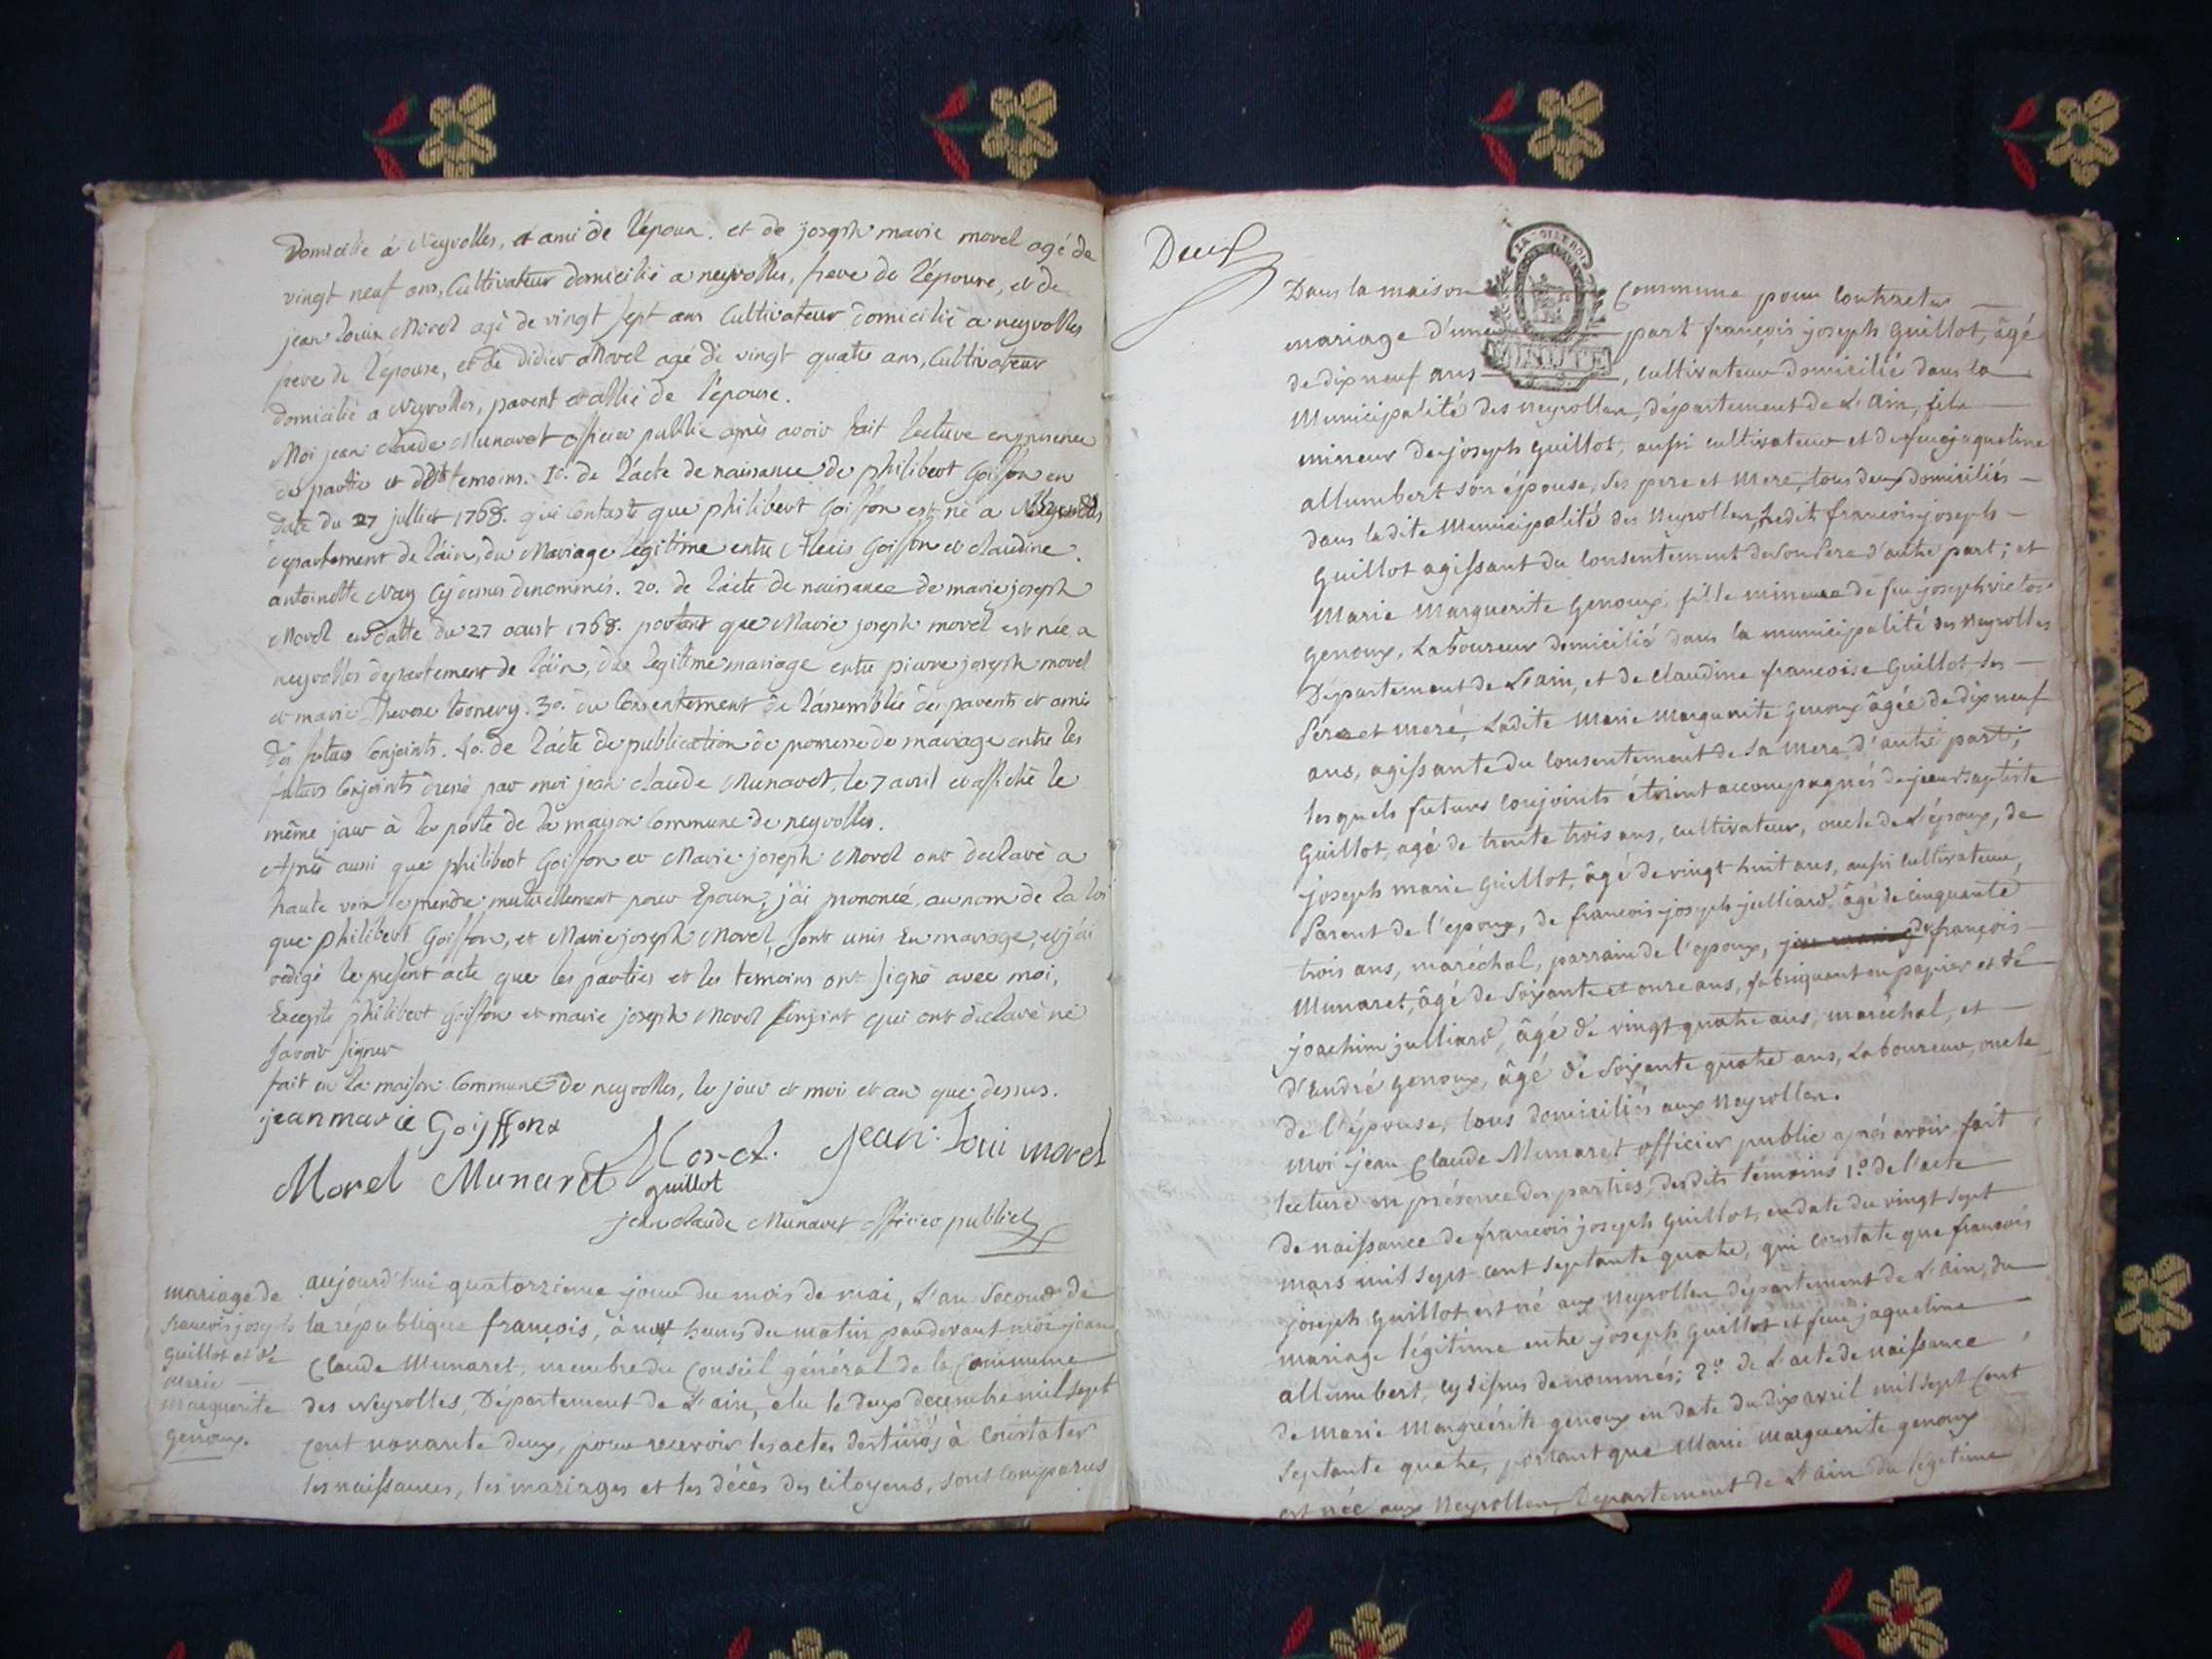 Domicilié à Neyrolles, et ami de l'époux. et de joseph marie morel agé de
vingt neuf ans, Cultivateur domicilié a neyrolles, frere de l'épouse, et de
jean louis Morel agé de vingt sept ans Cultivateur domicilié a neyrolles
frere de l'épouse, et de didier Morel agé de vingt quatre ans, Cultivateur
domicilié a Neyrolles, parent et allié de l'épouse.
Moi jean claude Munaret officier public après avoir fait lecture en presence
de partie et dits temoins. 1o. de l'acte de naissance de philibert Goiffon en
date du 27 julliet 1768. qui Contaste que philibert Goiffon est né a Neyrolles
département de l'ain, du Mariage legitime entre Alexis Goiffon et claudine
antoinette Nay Cy dessus denommés. 2o. de l'acte de naissance de marie joseph
Morel en datte du 27 aoust 1768. portant que Marie joseph morel est née a
neyrolles departement de l'ain, du legitime mariage entre pierre joseph morel
et marie Therese 3o. du Consentement de l'assemblée des parents et amis
des futurs Conjoints. 4o. de l'acte de publication de promesse de mariage entre les
futurs Conjoints dressé par moi jean claude Munaret, le 7 avril et affiché le
même jour à la porte de la maison Commune de neyrolles.
Après aussi que philibert Goiffon et Marie joseph Morel ont declaré a
haute voix se prendre mutuellement pour Epoux, j'ai prononcé, au nom de la loi
que philibert Goiffon, et Marie joseph Morel, sont unis En mariage, et j'ai
redigé le present acte que les parties et les temoins ont signé avec moi,
Excepté philibert Goiffon et marie joseph Morel Conjoint qui ont déclaré ne
savoir signer
fait en la maison Commune de neyrolles, le jour et moi et an que dessus.
jean marie Goiffon
Morel Munaret Morel. jean loui morel
guillot
jean claude Munaret officier public
mariage de
francois joseph
guillot et de
marie
marguerite
genoux.
aujourd'hui quatorzieme jour du mois de mai, L'an Second de
la république françois, à neuf heures du matin pardevant moi jean
Claude Munaret, membre du Conseil général de la Commune
des Neyrolles, Département de L'ain, elu le deux decembre mil sept
cent nonante deux, pour recevoir les actes destinés à Constater
les naissances, les mariages et les décès des citoyens, sont comparus
Deux
LA LOI LE ROI
MINUTE
Dans la maison Commune pour Contracter
mariage d'une part françois joseph Guillot, âgé
de dix neuf ans, cultivateur domicilié dans la
Municipalité des neyrolles, département de L'Ain, fils
mineur de joseph guillot, aussi cultivateur et de feue jaqueline
allumbert son épouse, Ses pere et Mere, tous deux domiciliés
dans ladite Municipalité des Neyrolles, Ledit francois joseph
Guillot agissant du Consentement de Son Pere d'autre part; et
Marie Marguerite Genoux, fille mineure de feu joseph victor
genoux, Laboureur domicilié dans la municipalité des neyrolles
Département de L'ain, et de claudine francoise Guillot, Ses
Pere et mere, Ladite Marie Marguerite Genoux âgée de dix neuf
ans, agissante du Consentement de Sa Mere d'autre part;
les quels futurs conjoints étoient accompagnés de jean baptiste
Guillot, agé de trente trois ans, cultivateur, oncle de L'époux, de
joseph marie Guillot, âgé de vingt huit ans, aussi cultivateur,
Parent de l'epoux, de francois joseph julliard âgé de cinquante
trois ans, maréchal, parrain de l'epoux, de françois
Munaret, âgé de Soixante et onze ans, fabriquant en papier et de
joachim julliard, âgé de vingt quatre ans, maréchal, et
d'André genoux, âgé de Soixante quatre ans, Laboureur, oncle
de l'épouse, tous domiciliés aux Neyrolles.
Moi jean Claude Munaret officier public après avoir fait
lecture en présence des parties, desdits témoins 1.o de l'acte
de naissance de francois joseph Guillot, en date du vingt sept
mars mil sept cent septante quatre, qui constate que francois
joseph Guillot est né aux Neyrolles département de L'Ain, du
mariage légitime entre joseph Guillot et feue jaqueline
allumbert, cy dessus denommés; 2.o de L'acte de naissance
de Marie Marguérite genoux en date du dix avril mil sept Cent
Septante quatre, portant que Marie Marguerite genoux
est née aux Neyrolles, Departement de L'Ain du legitime